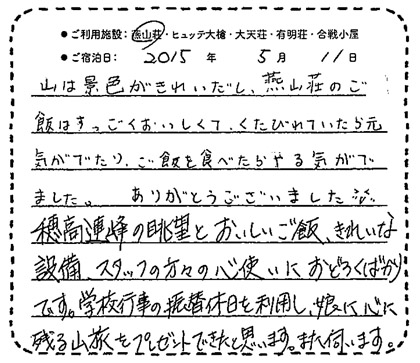 ● ご利用施設：燕山荘・ヒュッテ大槍・大天荘・有明荘・合戦小屋
● ご宿泊日： 2015 年 5 月 11 日
山は景色がきれいだし、燕山荘のご
飯はすっごくおいしくて、くたびれていたら元
気がでたり、ご飯を食べたらやる気がで
ました。 ありがとうございました
穂高連峰の眺望とおいしいご飯、きれいな
設備、スタッフの方々の心使いにおどろくばかり
です。学校行事の振替休日を利用し、娘に心に
残る山旅をプレゼントできたと思います。また伺います。